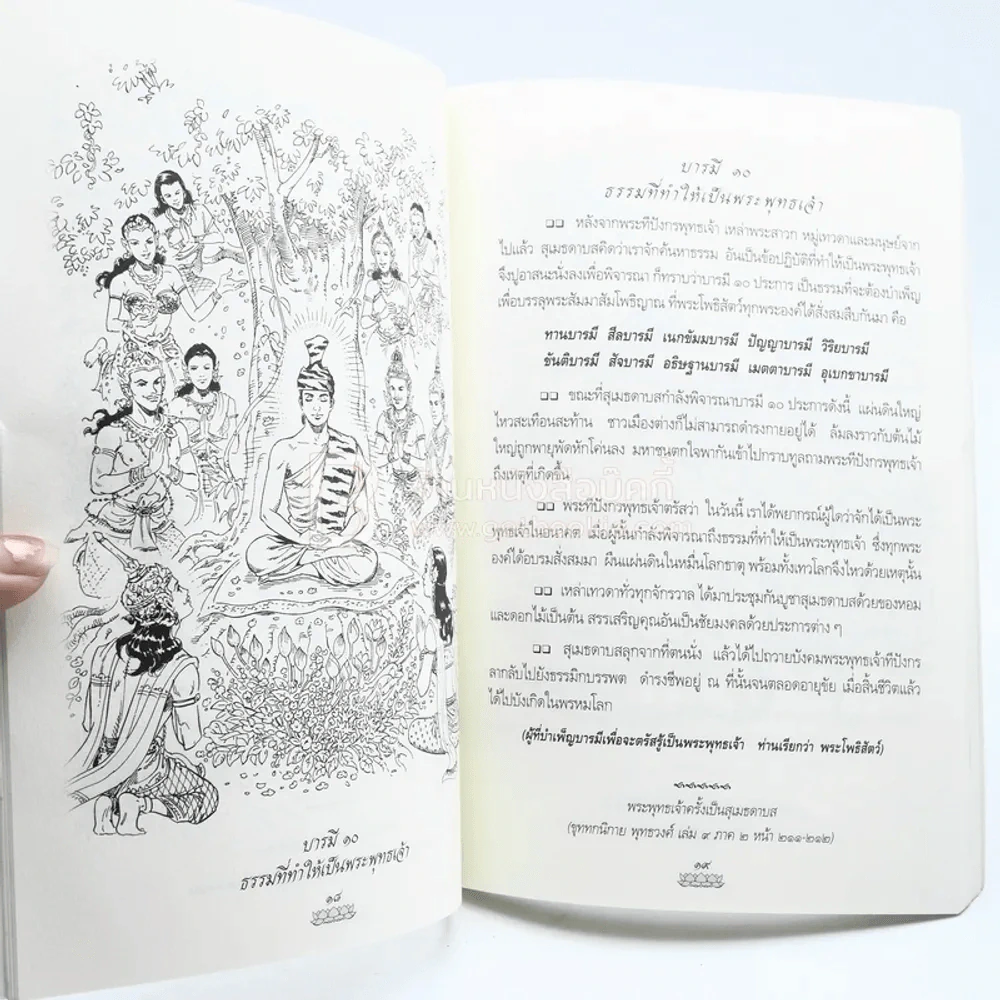 บารมี ๑๐
ธรรมที่ทำให้เป็นพระพุทธเจ้า
๑๘
บารมี ๑๐
ธรรมที่ทำให้เป็นพระพุทธเจ้า
หลังจากพระทีปังกรพุทธเจ้า เหล่าพระสาวก หมู่เทวดาและมนุษย์จาก
ไปแล้ว สุเมธดาบสคิดว่าเราจักค้นหาธรรม อันเป็นข้อปฏิบัติที่ทำให้เป็นพระพุทธเจ้า
จึงปูอาสนะนั่งลงเพื่อพิจารณา ก็ทราบว่าบารมี ๑๐ ประการ เป็นธรรมที่จะต้องบำเพ็ญ
เพื่อบรรลุพระสัมมาสัมโพธิญาณ ที่พระโพธิสัตว์ทุกพระองค์ได้สั่งสมสืบกันมา คือ
ทานบารมี สีลบารมี เนกขัมมบารมี ปัญญาบารมี วิริยบารมี
ขันติบารมี สัจบารมี อธิษฐานบารมี เมตตาบารมี อุเบกขาบารมี
ขณะที่สุเมธดาบสกำลังพิจารณาบารมี ๑๐ ประการดังนี้ แผ่นดินใหญ่
ไหวสะเทือนสะท้าน ชาวเมืองต่างก็ไม่สามารถดำรงกายอยู่ได้ ล้มลงราวกับต้นไม้
ใหญ่ถูกพายุพัดหักโค่นลง มหาชนตกใจพากันเข้าไปกราบทูลถามพระทีปังกรพุทธเจ้า
ถึงเหตุที่เกิดขึ้น
พระทีปังกรพุทธเจ้าตรัสว่า ในวันนี้ เราได้พยากรณ์ผู้ใดว่าจักได้เป็นพระ
พุทธเจ้าในอนาคต เมื่อผู้นั้นกำลังพิจารณาถึงธรรมที่ทำให้เป็นพระพุทธเจ้า ซึ่งทุกพระ
องค์ได้อบรมสั่งสมมา ผืนแผ่นดินในหมื่นโลกธาตุ พร้อมทั้งเทวโลกจึงไหวด้วยเหตุนั้น
เหล่าเทวดาทั่วทุกจักรวาล ได้มาประชุมกันบูชาสุเมธดาบสด้วยของหอม
และดอกไม้เป็นต้น สรรเสริญคุณอันเป็นชัยมงคลด้วยประการต่าง ๆ
สุเมธดาบสลุกจากที่ตนนั่ง แล้วได้ไปถวายบังคมพระพุทธเจ้าทีปังกร
ลากลับไปยังธรรมิกบรรพต ดำรงชีพอยู่ ณ ที่นั้นจนตลอดอายุขัย เมื่อสิ้นชีวิตแล้ว
ได้ไปบังเกิดในพรหมโลก
(ผู้ที่บำเพ็ญบารมีเพื่อจะตรัสรู้เป็นพระพุทธเจ้า ท่านเรียกว่า พระโพธิสัตว์)
พระพุทธเจ้าครั้งเป็นสุเมธดาบส
(ขุททกนิกาย พุทธวงศ์ เล่ม ๙ ภาค ๒ หน้า ๒๑๑-๒๑๒)
๑๙